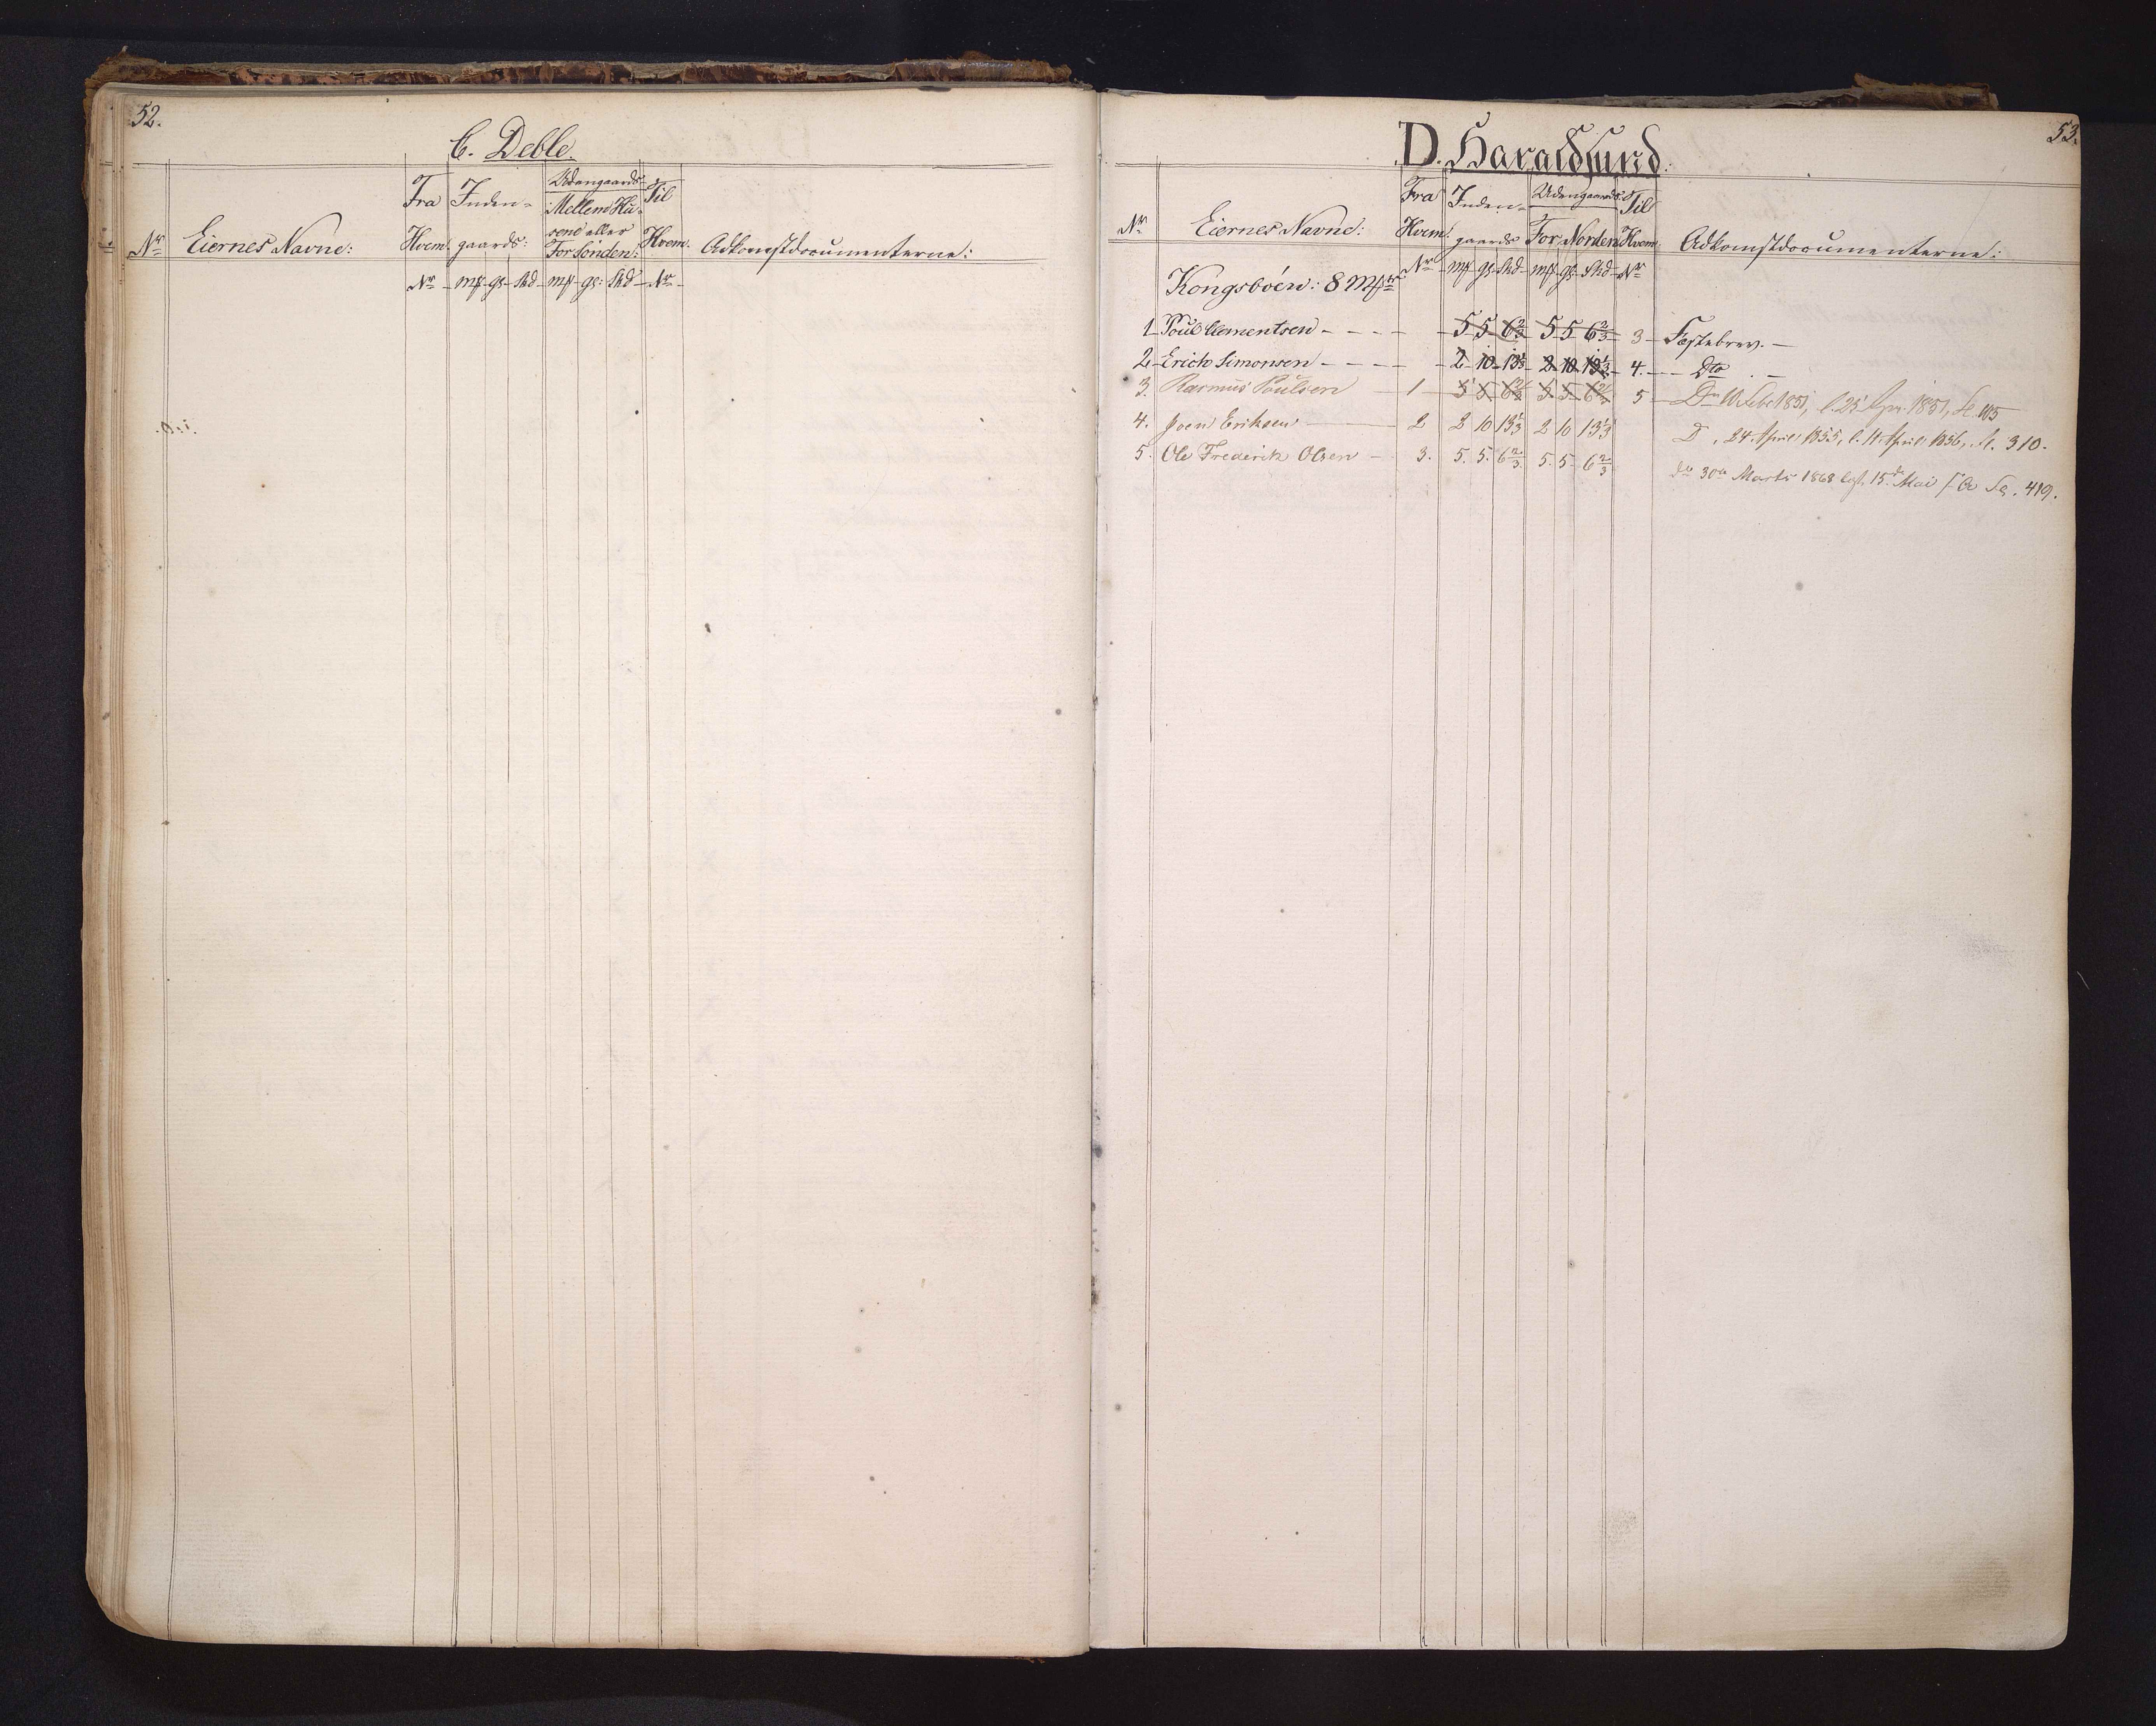 52.
C. Deble.
Nr Eiernes Navne: Fra Hvem Inden-gaards: Udengaards- Mellem Husene eller For Sönden: Til Hvem. Adkomstdocumenterne:
Nr mk gs skd mk gs: skd Nr
53.
D. Haraldsund.
Nr Eiernes Navne: Fra Hvem Inden-gaards Udengaards: For Norden Til Hvem Adkomstdocumenterne:
Kongsböen: 8 Mk Nr mk gs skd mk gs skd Nr
1 Poul Clementsen - - - - 5 5 6 2/3 5 5 6 2/3 3 Fæstebrev. —
2 Erich Simonsen - - - - 2 10 13 1/3 2 10 13 1/3 4. Dto. —
3. Rasmus Poulsen — 1 5 5 6 2/3 5 5 6 2/3 5 1851, 1851,
4. Joen Eriksen — 2 2 10 13 1/3 2 10 13 1/3 D, 24 April 1855, l. 11 April 1856, 310.
5. Ole Frederik Olsen — 3. 5. 5. 6 2/3 5. 5. 6 2/3 do 30te Marts 1868 15de Mai 419.